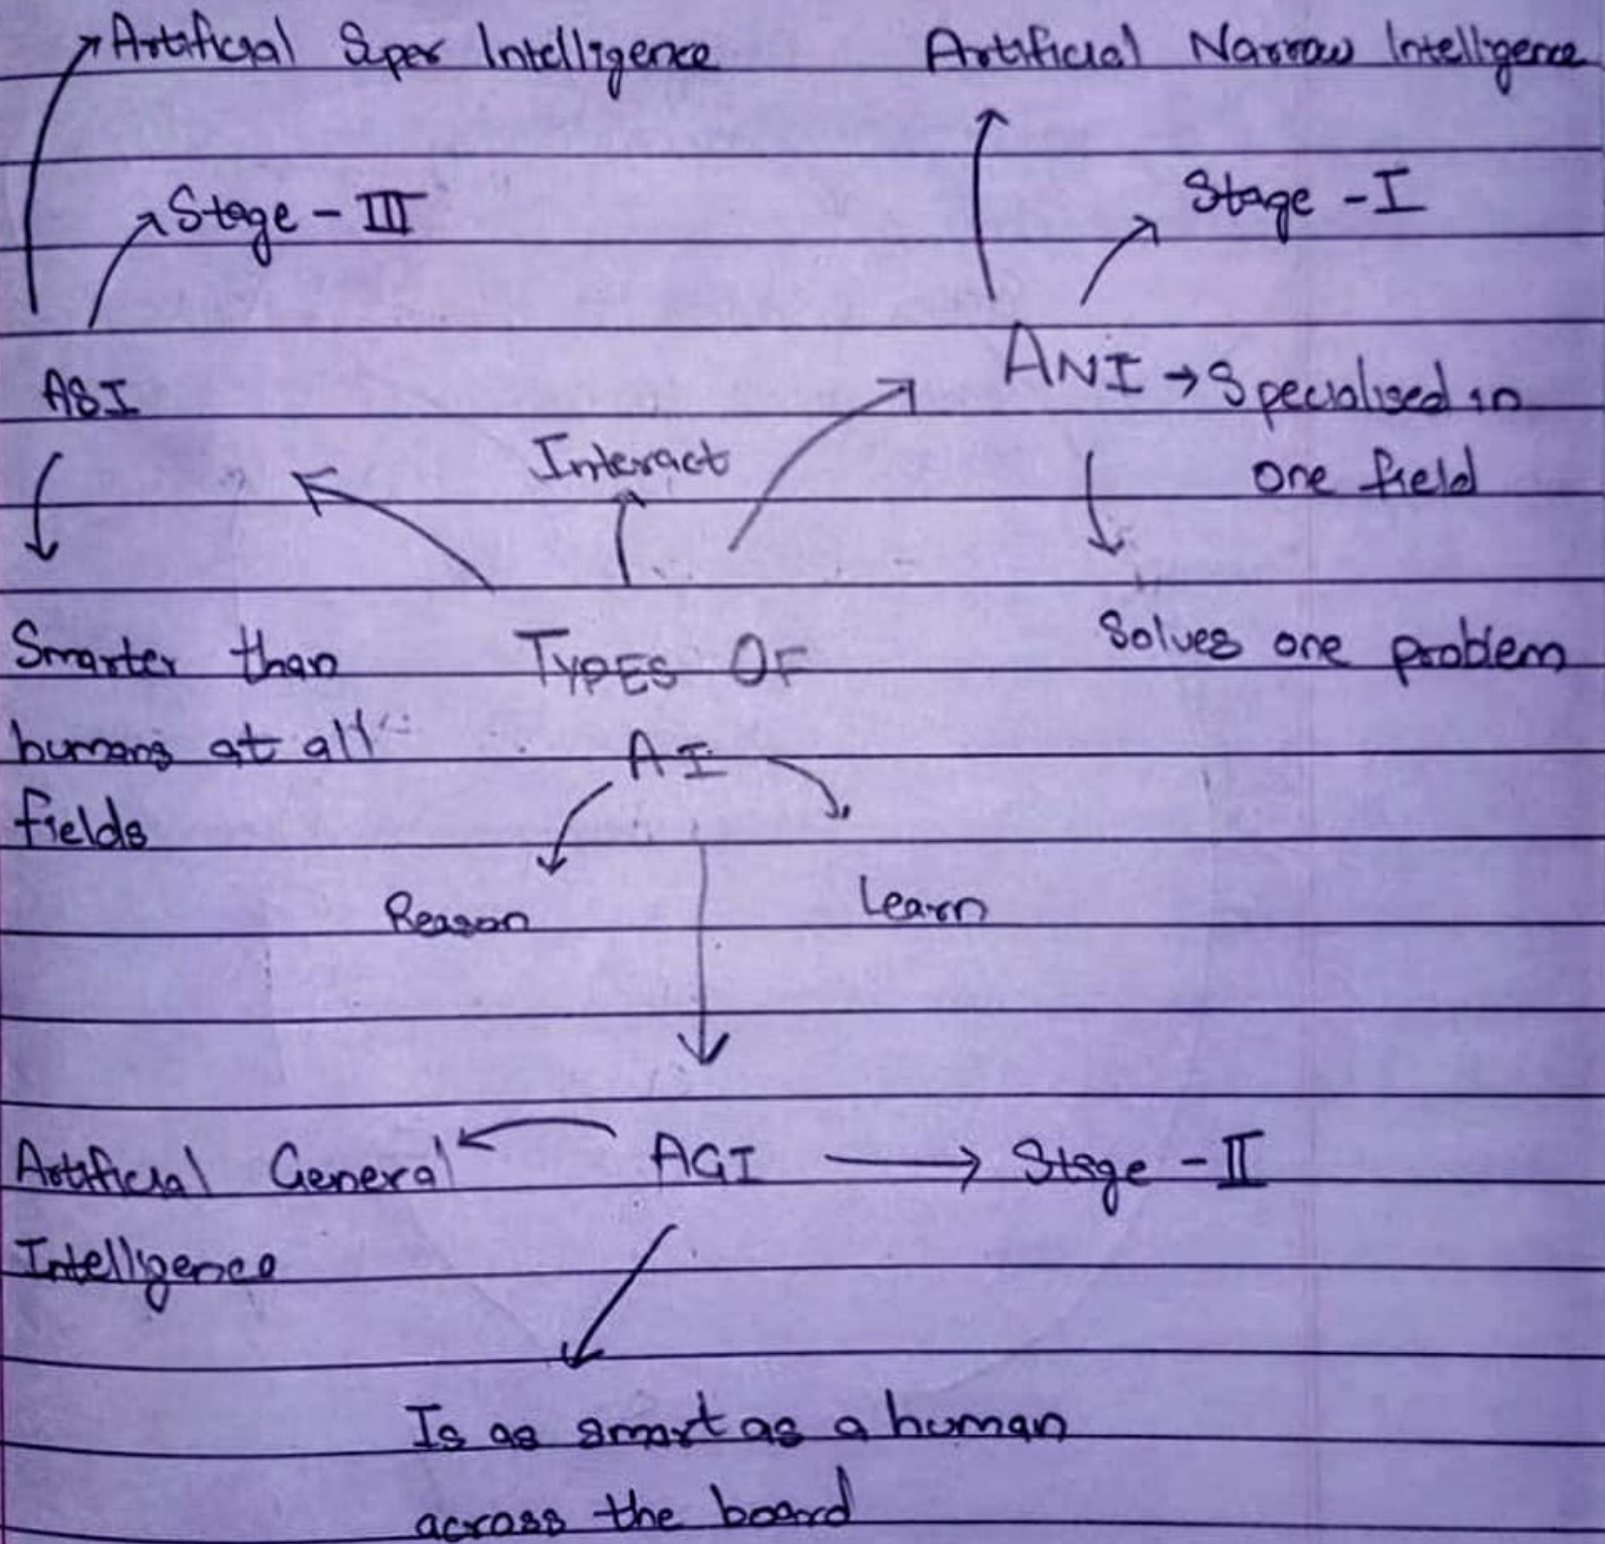 Artificial Super Intelligence
Artificial Narrow Intelligence
Stage - III
Stage - I
ASI
ANI → Specialised in
one field
Interact
Solves one problem
Smarter than
humans at all
fields
TYPES OF
AI
Reason
Learn
Artificial General
Intelligence
AGI
Stage - II
Is as smart as a human
across the board